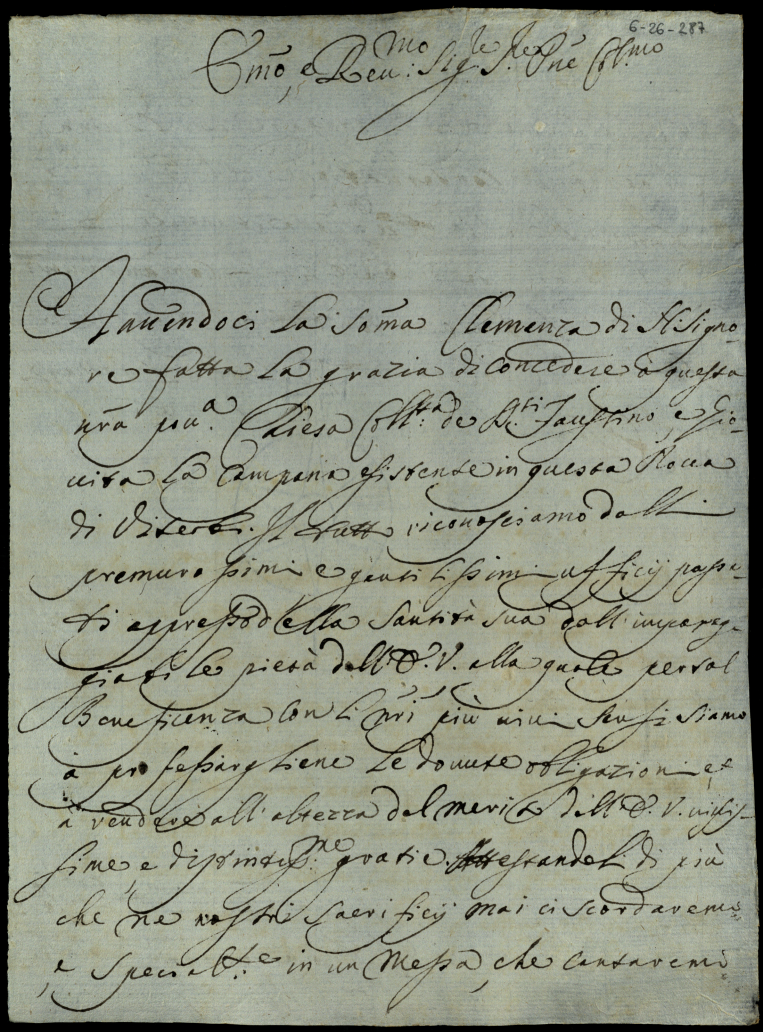 6-26-287
Em̃o, e Reu:mo Sig:re S:re Pñe Col:mo
Hauendoci La som̃a Clemenza di N: Signo-
re fatta La grazia di Concedere à questa
nr̃a pou:a Chiesa Coll:ta de S:ti Faustino, e Gio-
uita La Campana esistente in questa Rocca
di Viterbo. Il tutto riconosciamo dalli
premurosissimi e gentilissimi ufficij passa-
ti appresso della Santità Sua dall'impareg-
giabile pietà dell'E. V. alla quale per tal
Beneficenza Con li nr̃i più uiui sensi siamo
à professargliene Le douute obligazioni et
à rendere all'altezza del merito dell'E. V. uiuis-
sime, e distintiss:me gratie. Attestandoli di più
che ne nostri sacrificij mai ci scordaremo
e special:te in un Messa, che Cantaremo